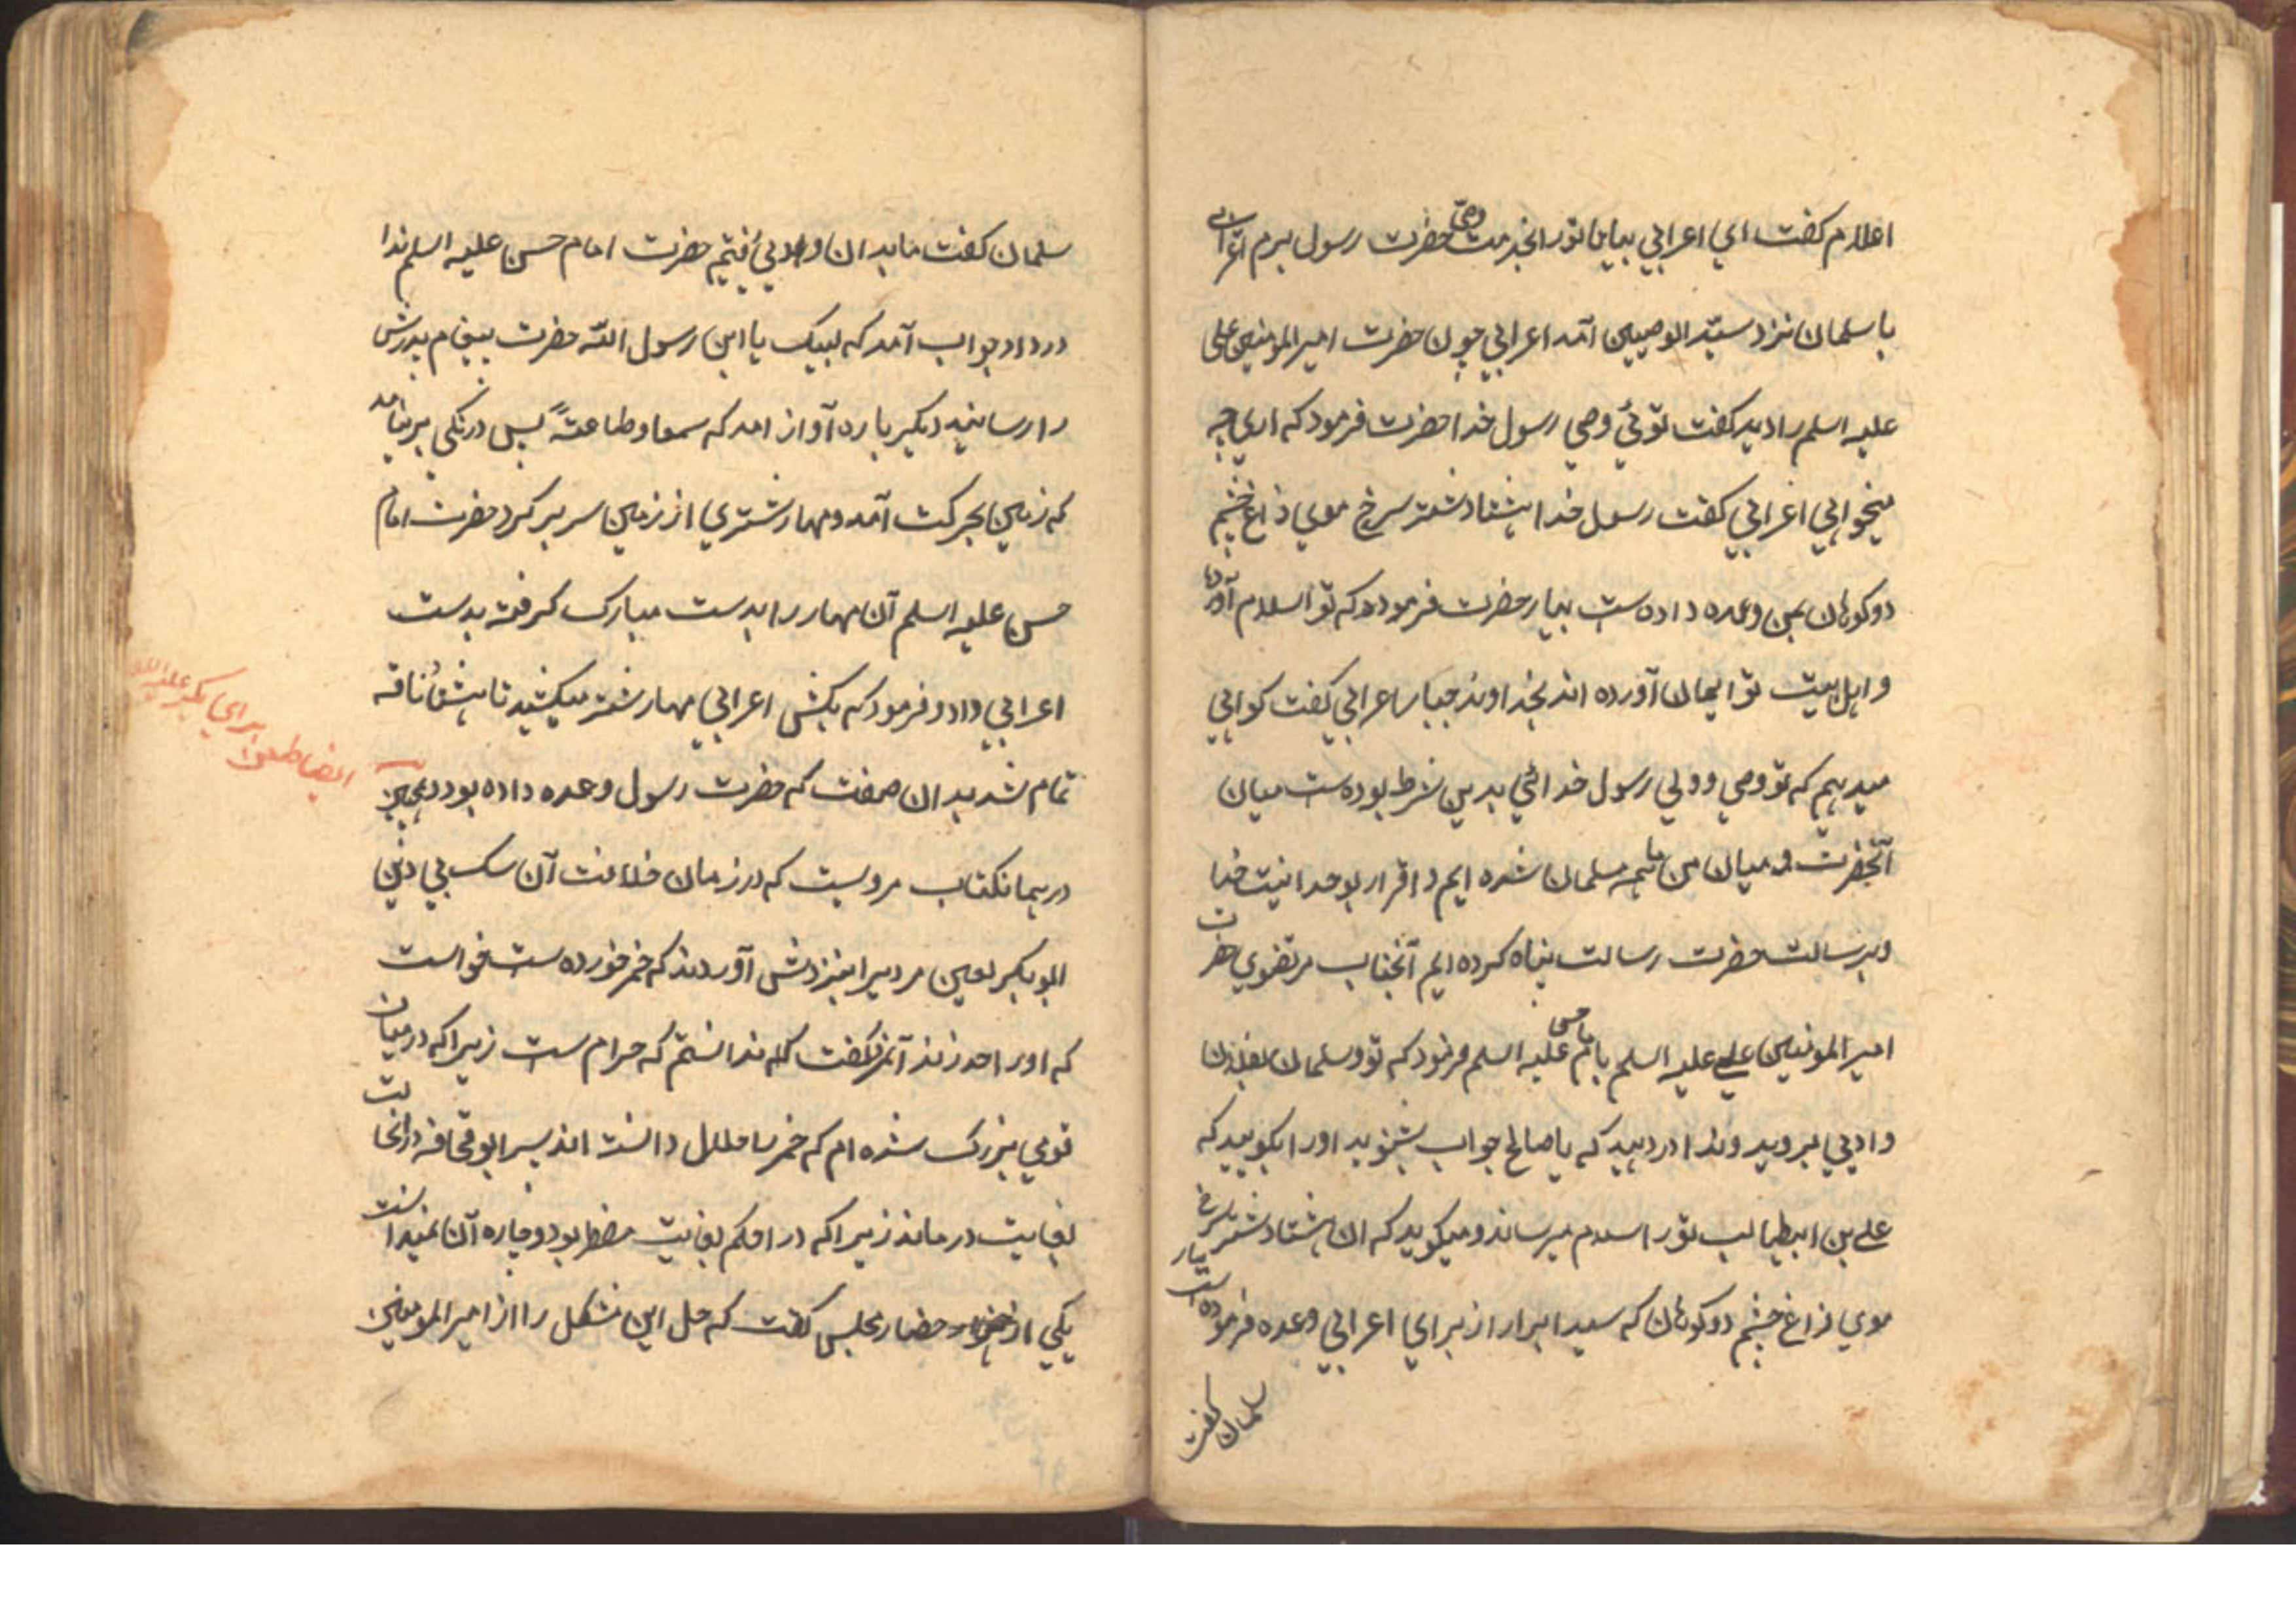 اعلام کفت ای اعرابی بیا تا تورا بخدمت وصی حضرت رسول برم اعرابی
با سلمان نزد سیّد الوصیین آمد اعرابی چون حضرت امیر المومنین علی
علیه اسلم را دید کفت توئی وصی رسول خدا حضرت فرمود که اری چه
میخواهی اعرابی کفت رسول خدا هشتاد شتر سرخ موی زاغ چشم
دو کوهان بمن وعده داده ست بیار حضرت فرمود که تو اسلام آورده
و اهل بیت تو ایمان آورده اند بخداوند جبار اعرابی کفت کواهی
میدهم که تو وصی و ولی رسول خدائی بدین شرط بوده ست میان
آنحضرت و میان من ما همه مسلمان شده ایم و اقرار بوحدانیت خدا
و برسالت حضرت رسالت پناه کرده ایم آنجناب مرتضوی حضرت
امیر المومنین علی علیه اسلم با امام حسن علیه اسلم فرمود که تو و سلمان بفلان
وادی بروید و ندا در دهید که یا صالح جواب بشنوید اورا بکویید که
علی بن ابیطالب تورا سلام میرساند و میکوید که ان هشتاد شتر سرخ
موی زاغ چشم دو کوهان که سید ابرار از برای اعرابی وعده فرموده است بیار
سلمان کفت
سلمان کفت ما بدان وادی رفتیم حضرت امام حسن علیه اسلم ندا
در داد جواب آمد که لبیک یا ابن رسول الله حضرت پیغام پدرش
را رسانید دیکر باره آواز امد که سمعا و طاعةً پس درنکی بر نیامد
که زمین بحرکت آمد و مهار شتری از زمین سر بر کرد حضرت امام
حسن علیه اسلم آن مهار را بدست مبارک کرفته بدست
اعرابی داد و فرمود که بکش اعرابی مهار شتر میکشید تا هشتاد ناقه
تمام شد بدان صفت که حضرت رسول وعده داده بود و همچنین
در همانکتاب مرویست که در زمان خلافت آن سک بی دین
ابوبکر لعین مردیرا بنزدش آوردند که خمر خورده ست خواست
که اورا حد زند آنمرد کفت که ندانستم که حرام ست زیرا که در میان
قومی بزرک شده ام که خمر را حلال دانسته اند پسر ابو قحافه در انحالت
بغایت درماند زیرا که در احکم بغایت مضطر بود و چاره آن نمیدانست
یکی از حضار مجلس کفت که حل این مشکل را از امیر المومنین
ایضا طعن برای بکر علیه